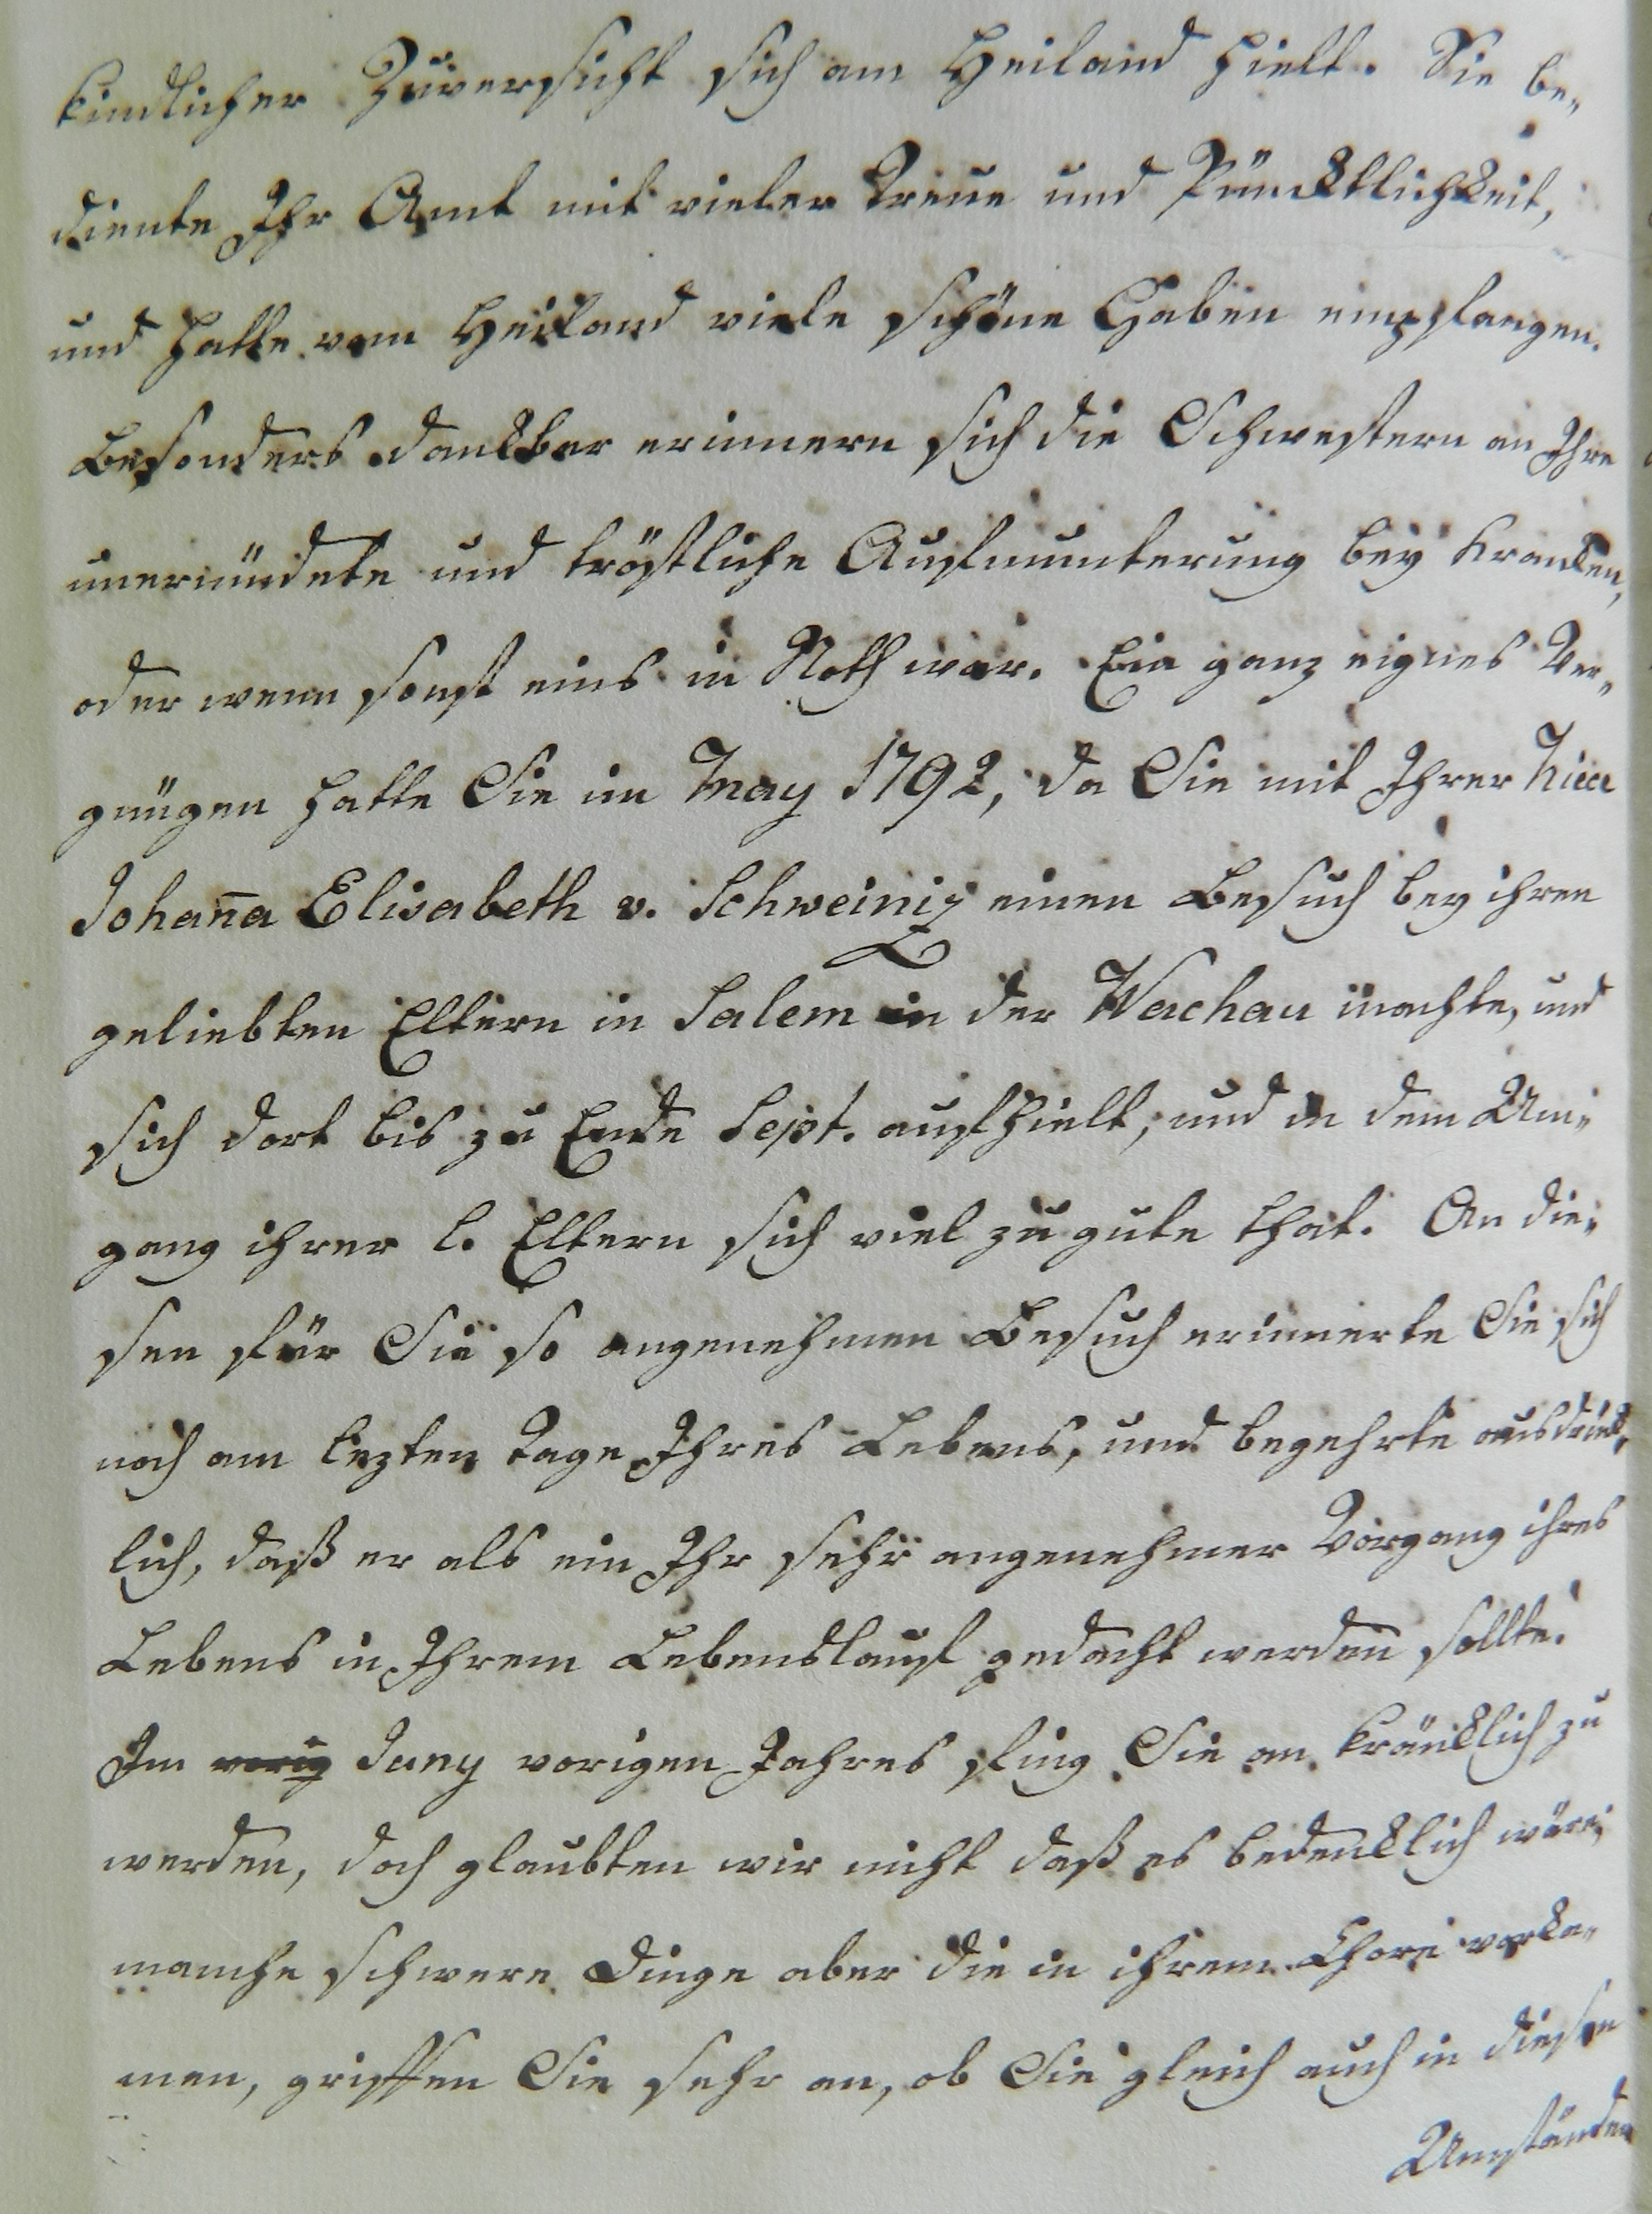 kindlicher Zuversicht sich am Heiland hielt. Sie be-
diente Ihr Amt mit vieler Treue und Püncktlichkeit,
und hatte vom Heiland viele schöne Gaben empfangen.
Besonders danckbar erinnern sich die Schwestern an Ihre
unermüdete und tröstliche Aufmunterung bey Krancken,
oder wenn sonst eins in Noth war. Ein ganz eignes Ver-
gnügen hatte Sie im May 1792, da Sie mit Ihrer Niece
Johan̅a Elisabeth v. Schweiniz einen Besuch bey ihren
geliebten Eltern in Salem in der Wachau machte, und
sich dort bis zu Ende Sept. aufhielt, und in dem Um-
gang ihrer l. Eltern sich viel zu gute that. An die-
sen für Sie so angenehmen Besuch erinnerte Sie sich
noch am lezten Tage Ihres Lebens, und begehrte ausdrück-
lich, daß er als ein Ihr sehr angenehmer Vorgang ihres
Lebens in Ihrem Lebenslauf gedacht werden sollte.
Im vorig Juny vorigen Jahres fing Sie an kräncklich zu
werden, doch glaubten wir nicht daß es bedencklich wäre,
manche schwere Dinge aber die in ihrem Chore vorka-
men, griffen Sie sehr an, ob Sie gleich auch in diesen
Umständen